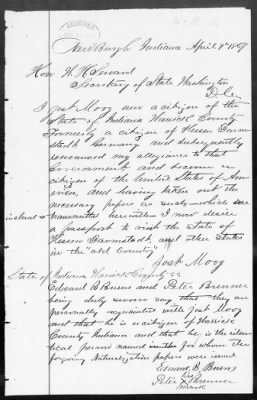 RECEIVED
Newburgh Indiana April 9th 1867
Hon W. H. Seward
Secretary of State Washington
D. C.
I Jost Mory am a citizen of the
State of Indiana Warrick County
Formerly a citizen of Hessen Darm
stadt Germany and subsequently
renounced my allegiance to that
Government and became a
citizen of the United States of Am
erica, and having taken out the
necessary papers as such which are
inclosed or transmitted herewith I now desire
a passport to visit the State of
Hessen Darmstadt, and other States
in the "old Country"
Jost Mory
State of Indiana Warrick County SS
Edward B Burns and Peter Brenner
being duly sworn say that they are
personally acquainted with Jost Mory
and that he is a citizen of Warrick
County Indiana and that he is the iden
tical person named for whom the
forgoing Naturalization papers were issued
Edward B Burns
his
Peter X Brenner
mark